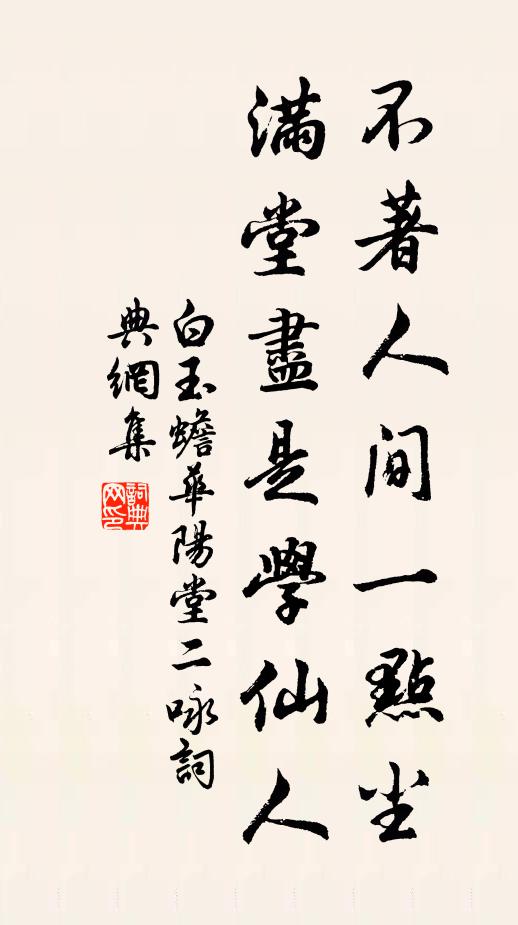 不著人間一點尘
滿堂盡是學仙人
白玉蟾華陽堂二咏詞
典網集
詞典
网印